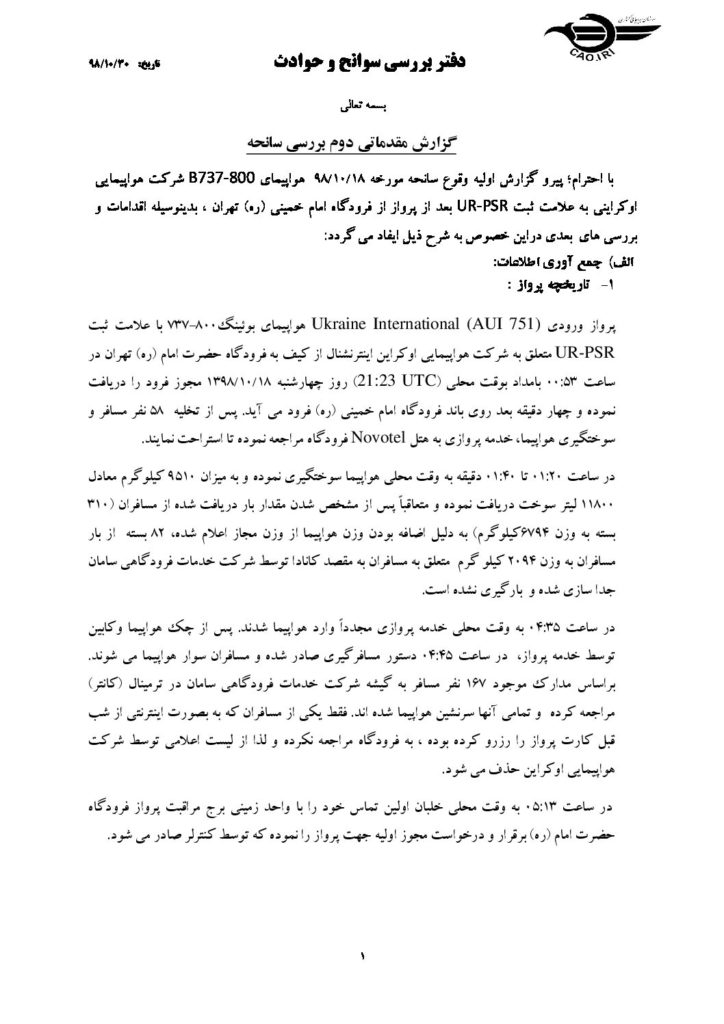 سازمان هواپیمایی کشوری
CAO.IRI
دفتر بررسی سوانح و حوادث
تاریخ: ۹۸/۱۰/۳۰
بسمه تعالی
گزارش مقدماتی دوم بررسی سانحه
با احترام؛ پیرو گزارش اولیه وقوع سانحه مورخه ۹۸/۱۰/۱۸ هواپیمای B737-800 شرکت هواپیمایی
اوکراینی به علامت ثبت UR-PSR بعد از پرواز از فرودگاه امام خمینی (ره) تهران ، بدینوسیله اقدامات و
بررسی های بعدی دراین خصوص به شرح ذیل ایفاد می گردد:
الف) جمع آوری اطلاعات:
۱- تاریخچه پرواز :
پرواز ورودی Ukraine International (AUI 751) هواپیمای بوئینگ۸۰۰-۷۳۷ با علامت ثبت
UR-PSR متعلق به شرکت هواپیمایی اوکراین اینترنشنال از کیف به فرودگاه حضرت امام (ره) تهران در
ساعت ۰۰:۵۳ بامداد بوقت محلی (21:23 UTC) روز چهارشنبه ۱۳۹۸/۱۰/۱۸ مجوز فرود را دریافت
نموده و چهار دقیقه بعد روی باند فرودگاه امام خمینی (ره) فرود می آید. پس از تخلیه ۵۸ نفر مسافر و
سوختگیری هواپیما، خدمه پروازی به هتل Novotel فرودگاه مراجعه نموده تا استراحت نمایند.
در ساعت ۰۱:۲۰ تا ۰۱:۴۰ دقیقه به وقت محلی هواپیما سوختگیری نموده و به میزان ۹۵۱۰ کیلوگرم معادل
۱۱۸۰۰ لیتر سوخت دریافت نموده و متعاقباً پس از مشخص شدن مقدار بار دریافت شده از مسافران (۳۱۰
بسته به وزن ۶۷۹۴کیلوگرم) به دلیل اضافه بودن وزن هواپیما از وزن مجاز اعلام شده، ۸۲ بسته از بار
مسافران به وزن ۲۰۹۴ کیلو گرم متعلق به مسافران به مقصد کانادا توسط شرکت خدمات فرودگاهی سامان
جدا سازی شده و بارگیری نشده است.
در ساعت ۰۴:۳۵ به وقت محلی خدمه پروازی مجدداً وارد هواپیما شدند. پس از چک هواپیما وکابین
توسط خدمه پرواز، در ساعت ۰۴:۴۵ دستور مسافرگیری صادر شده و مسافران سوار هواپیما می شوند.
براساس مدارک موجود ۱۶۷ نفر مسافر به گیشه شرکت خدمات فرودگاهی سامان در ترمینال (کانتر)
مراجعه کرده و تمامی آنها سرنشین هواپیما شده اند. فقط یکی از مسافران که به بصورت اینترنتی از شب
قبل کارت پرواز را رزرو کرده بوده ، به فرودگاه مراجعه نکرده و لذا از لیست اعلامی توسط شرکت
هواپیمایی اوکراین حذف می شود.
در ساعت ۰۵:۱۳ به وقت محلی خلبان اولین تماس خود را با واحد زمینی برج مراقبت پرواز فرودگاه
حضرت امام (ره) برقرار و درخواست مجوز اولیه جهت پرواز را نموده که توسط کنترلر صادر می شود.
۱